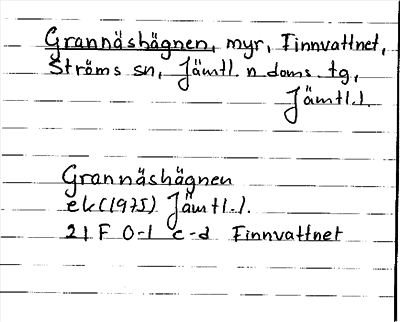 Grannäshägnen, myr, Finnvattnet,
Ströms sn, Jämtl. n doms. tg,
Jämtl. l.
Grannäshägnen
ek (1975) Jämtl. l.
21 F 0-1 c-d Finnvattnet